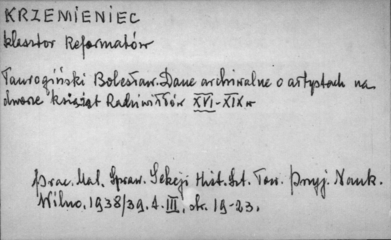 KRZEMIENIEC
klasztor Reformatów
Taurogiński Bolesław. Dane archiwalne o artystach na
dworze książąt Radziwiłłów XVI-XIX w
Prac. Mat. Spraw. Sekcji Hist. Szt. Tow. Przyj. Nauk.
Wilno, 1938/39. t. III, str. 19-23.